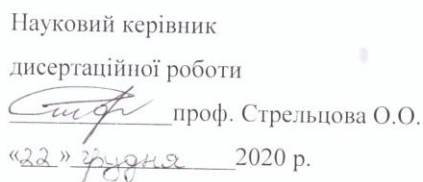 Науковий керівник
дисертаційної роботи
проф. Стрельцова О.О.
«22» грудня 2020 р.